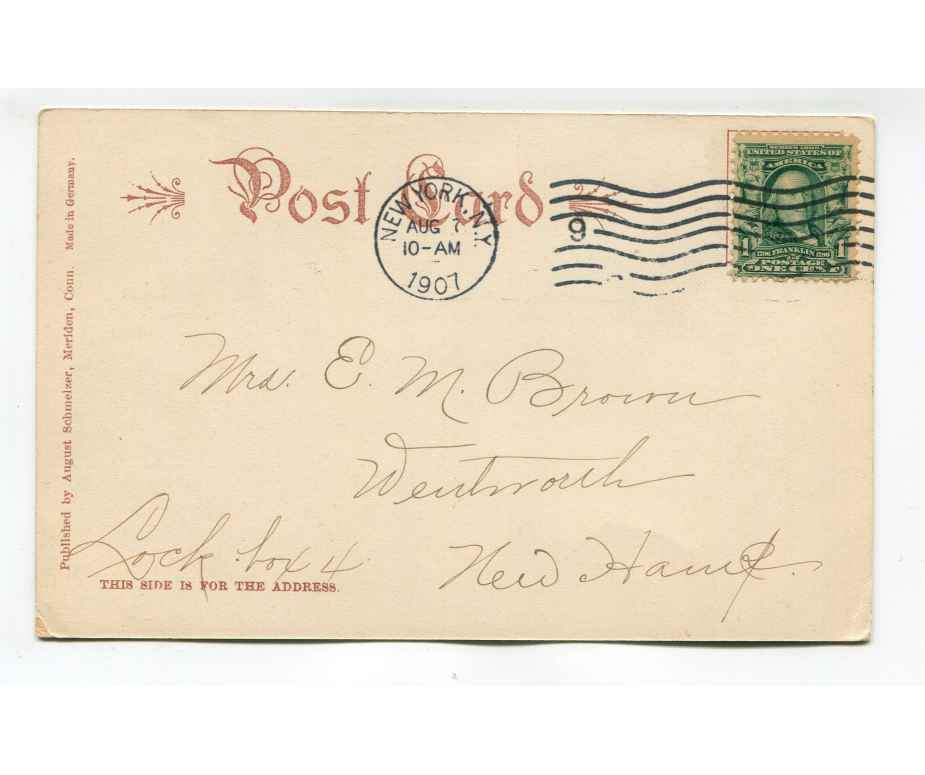 Post Card
NEW YORK, N.Y.
AUG 7
10-AM
1907
9
SERIES 1902
UNITED STATES OF
AMERICA
1 FRANKLIN 1
1706 1790
POSTAGE
ONE CENT
Mrs. E. M. Brown
Wentworth
Lock box 4
New Hamp.
THIS SIDE IS FOR THE ADDRESS.
Published by August Schmelzer, Meriden, Conn. Made in Germany.